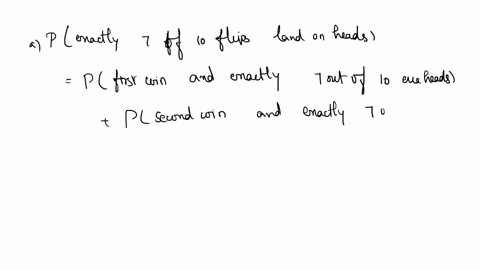 a) P( exactly 7 of 10 flips land on heads)
= P( first coin and exactly 7 out of 10 are heads)
+ P( second coin and exactly 7 o